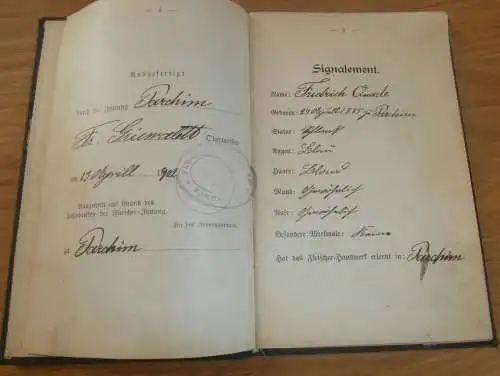 — 4 —
Ausgefertigt
durch die Innung Parchim
Fr. Obermeister
am 13 Aprill 1902
Ausgestellt auf Grund des
der Fleischer-Innung.
Für den
zu Parchim
— 5 —
Signalement.
Name: Fridrich
Geboren: 29 Aprill 1885 zu Parchim
Statur: Schlank
Augen: Blau
Haare: Blond
Mund: Gewöhnlich
Nase: Gewöhnlich
Besondere Merkmale: Keine
Hat das Fleischer-Handwerk erlernt in: Parchim